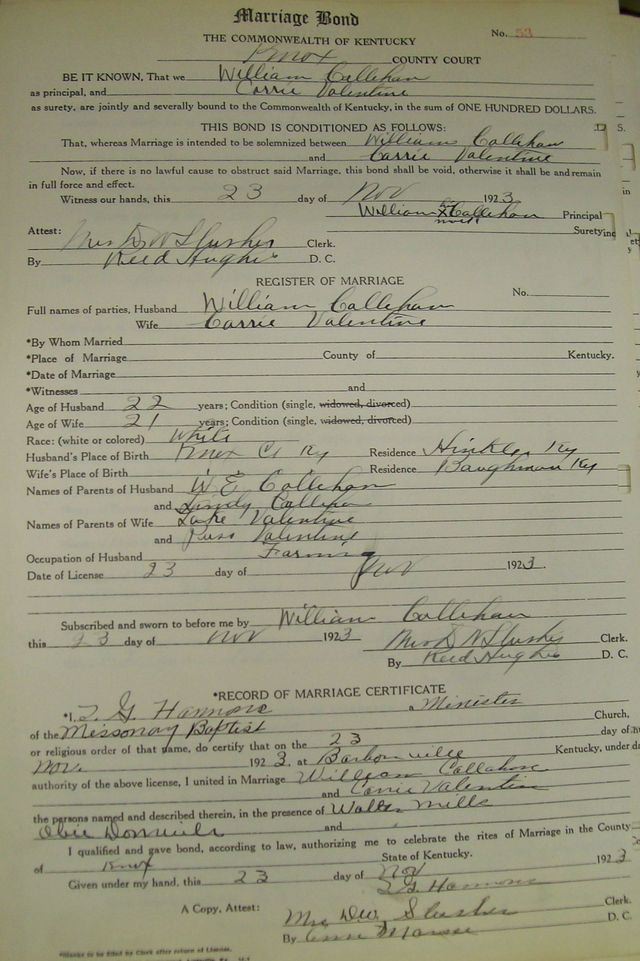 Marriage Bond
No. 53
THE COMMONWEALTH OF KENTUCKY
Knox COUNTY COURT
BE IT KNOWN, That we William Callehan
as principal, and Carrie Valentine
as surety, are jointly and severally bound to the Commonwealth of Kentucky, in the sum of ONE HUNDRED DOLLARS.
THIS BOND IS CONDITIONED AS FOLLOWS:
That, whereas Marriage is intended to be solemnized between William Callahan
and Carrie Valentine
Now, if there is no lawful cause to obstruct said Marriage, this bond shall be void, otherwise it shall be and remain
in full force and effect.
Witness our hands, this 23 day of Nov 1923
William X Callehan Principal
mark
Surety
Attest:
Mrs D W Slusher Clerk.
By Reed Hughes D. C.
REGISTER OF MARRIAGE
No.
Full names of parties, Husband William Callehan
Wife Carrie Valentine
*By Whom Married
*Place of Marriage County of Kentucky.
*Date of Marriage
*Witnesses and
Age of Husband 22 years; Condition (single, widowed, divorced)
Age of Wife 21 years; Condition (single, widowed, divorced)
Race: (white or colored) White
Husband's Place of Birth Knox Co Ky Residence Hinkler Ky
Wife's Place of Birth Residence Baughman Ky
Names of Parents of Husband W. E. Callehan
and Callehan
Names of Parents of Wife Valentine
and Valentine
Occupation of Husband Farming
Date of License 23 day of Nov 1923.
Subscribed and sworn to before me by William Callehan
this 23 day of Nov 1923
Mrs D W Slusher Clerk.
By Reed Hughes D. C.
*RECORD OF MARRIAGE CERTIFICATE
*I, G. Hammons Minister
of the Missonary Baptist Church,
or religious order of that name, do certify that on the 23 day of
Nov. 1923. at Barbourville Kentucky, under
authority of the above license, I united in Marriage William Callahan
and Carrie Valentine
the persons named and described therein, in the presence of Walter Mills
Obie and
I qualified and gave bond, according to law, authorizing me to celebrate the rites of Marriage in the County
of Knox State of Kentucky.
Given under my hand, this 23 day of Nov 1923
G. Hammons
A Copy, Attest: Mrs D.W. Slusher Clerk.
By D. C.
*Blanks to be filed by Clerk after return of License.